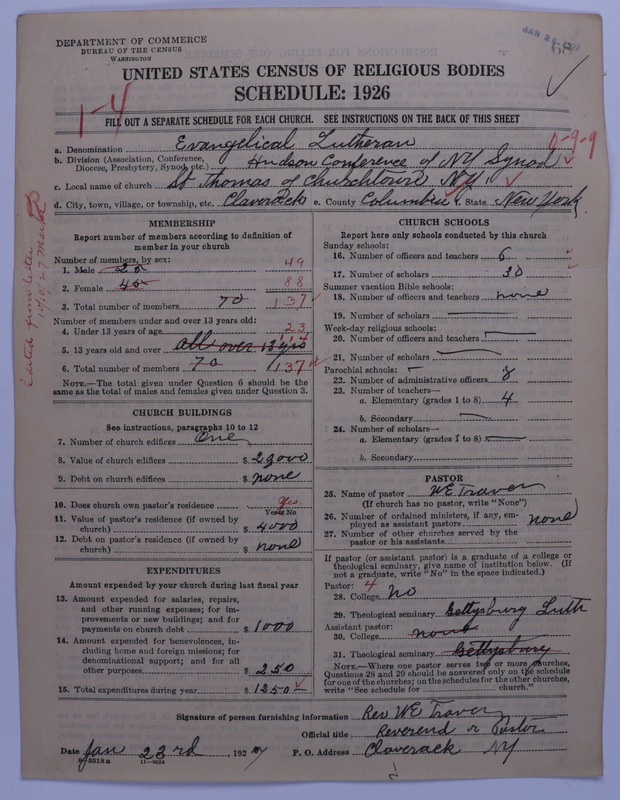 DEPARTMENT OF COMMERCE
BUREAU OF THE CENSUS
WASHINGTON
JAN 26
68
UNITED STATES CENSUS OF RELIGIOUS BODIES
SCHEDULE: 1926
1-4
FILL OUT A SEPARATE SCHEDULE FOR EACH CHURCH. SEE INSTRUCTIONS ON THE BACK OF THIS SHEET
a. Denomination Evangelical Lutheran
b. Division (Association, Conference, Diocese, Presbytery, Synod, etc.) Hudson Conference of NY Synod
c. Local name of church St Thomas of Churchtown NY
d. City, town, village, or township, etc. Claverack e. County Columbia f. State New York
MEMBERSHIP
Report number of members according to definition of
member in your church
Number of members, by sex:
1. Male 25 49
2. Female 45 88
3. Total number of members 70 137
Number of members under and over 13 years old:
4. Under 13 years of age 23
5. 13 years old and over all over 13 yrs 114
6. Total number of members 70 137
NOTE.—The total given under Question 6 should be the
same as the total of males and females given under Question 3.
CHURCH BUILDINGS
See instructions, paragraphs 10 to 12
7. Number of church edifices One
8. Value of church edifices $ 29000
9. Debt on church edifices $ none
10. Does church own pastor's residence Yes.
Yes or No
11. Value of pastor's residence (if owned by
church) $ 4000
12. Debt on pastor's residence (if owned by
church) $ none
EXPENDITURES
Amount expended by your church during last fiscal year
13. Amount expended for salaries, repairs,
and other running expenses; for im-
provements or new buildings; and for
payments on church debt $ 1000
14. Amount expended for benevolences, in-
cluding home and foreign missions; for
denominational support; and for all
other purposes $ 250
15. Total expenditures during year $ 1250
CHURCH SCHOOLS
Report here only schools conducted by this church
Sunday schools:
16. Number of officers and teachers 6
17. Number of scholars 30
Summer vacation Bible schools:
18. Number of officers and teachers none
19. Number of scholars
Week-day religious schools:
20. Number of officers and teachers
21. Number of scholars
Parochial schools:
22. Number of administrative officers 8
23. Number of teachers—
a. Elementary (grades 1 to 8) 4
b. Secondary
24. Number of scholars—
a. Elementary (grades 1 to 8)
b. Secondary
PASTOR
25. Name of pastor WE Traver
(If church has no pastor, write "None")
26. Number of ordained ministers, if any, em-
ployed as assistant pastors none
27. Number of other churches served by the
pastor or his assistants
If pastor (or assistant pastor) is a graduate of a college or
theological seminary, give name of institution below. (If
not a graduate, write "No" in the space indicated.)
Pastor: 4
28. College no
29. Theological seminary Gettysburg Luth
Assistant pastor:
30. College none
31. Theological seminary Gettysburg
NOTE.—Where one pastor serves two or more churches,
Questions 28 and 29 should be answered only on the schedule
for one of the churches; on the schedules for the other churches,
write "See schedule for church."
Signature of person furnishing information Rev WE Traver
Official title Reverend or Pastor
Date Jan 23rd, 1927 P. O. Address Claverack NY
8-5518a 11-9024